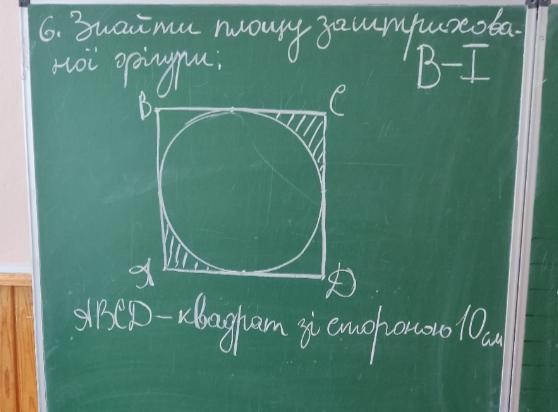 6. Знайти площу заштрихова-
ної фігури:
В-І
В
С
А
D
ABCD – квадрат зі стороною 10 см